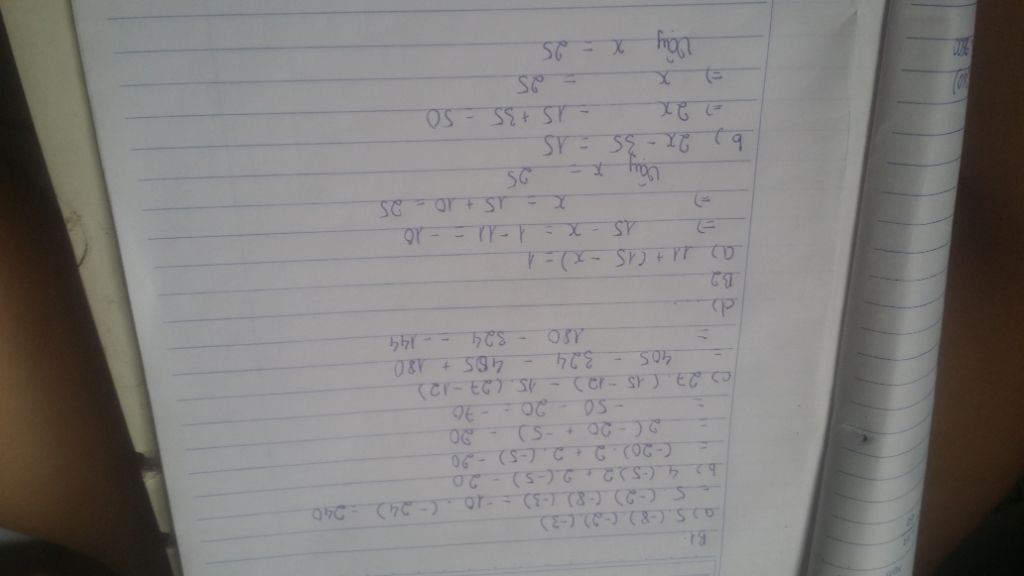 B1.
a) 5.(-8).(-2).(-3)
= 5 (-2) (-8) (-3) = -10 . (-24) = 240
b) 4(-5)2 + 2(-5) - 20
= (-20). 2 + 2 . (-5) - 20
= 2(-20 + -5) - 20
= - 50 - 20 = - 70
c) 27. (15 - 12) - 15. (27 - 12)
= 405 - 324 - 405 + 180
= 180 - 324 = -144
d) ....
B2
a) 11 + (15 - x) = 1
=) 15 - x = 1 - 11 = - 10
=) x = 15 + 10 = 25
Vậy x = 25
b) 2x - 35 = 15
=) 2x = 15 + 35 = 50
=) x = 25
Vậy x = 25